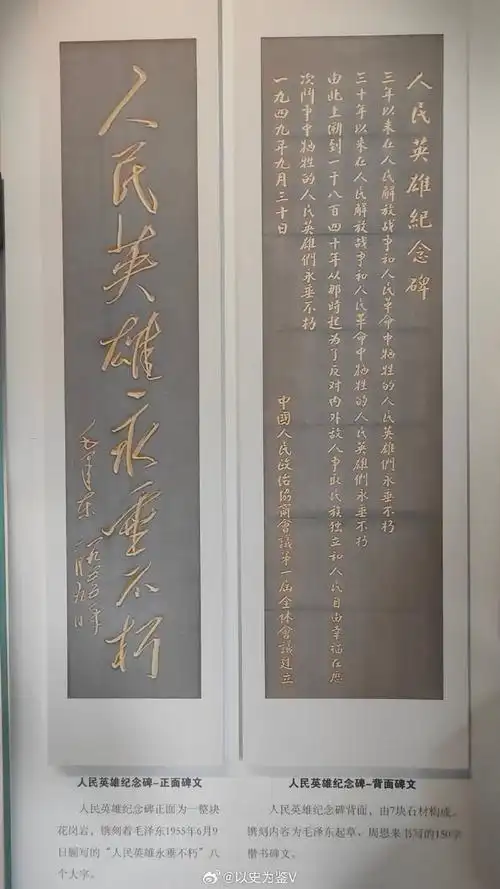 人民英雄永垂不朽
毛泽东
一九五五年
六月九日
人民英雄紀念碑
三年以来在人民解放战争和人民革命中牺牲的人民英雄們永垂不朽
三十年以来在人民解放战争和人民革命中牺牲的人民英雄們永垂不朽
由此上溯到一千八百四十年从那時起为了反对内外敌人争取民族独立和人民自由幸福在历
次鬥争中牺牲的人民英雄們永垂不朽
一九四九年九月三十日
中國人民政治協商會議第一届全体會議建立
人民英雄纪念碑-正面碑文
人民英雄纪念碑正面为一整块
花岗岩，镌刻着毛泽东1955年6月9
日题写的“人民英雄永垂不朽”八
个大字。
人民英雄纪念碑-背面碑文
人民英雄纪念碑背面，由7块石材构成。
镌刻内容为毛泽东起草、周恩来书写的150字
楷书碑文。
@以史为鉴V